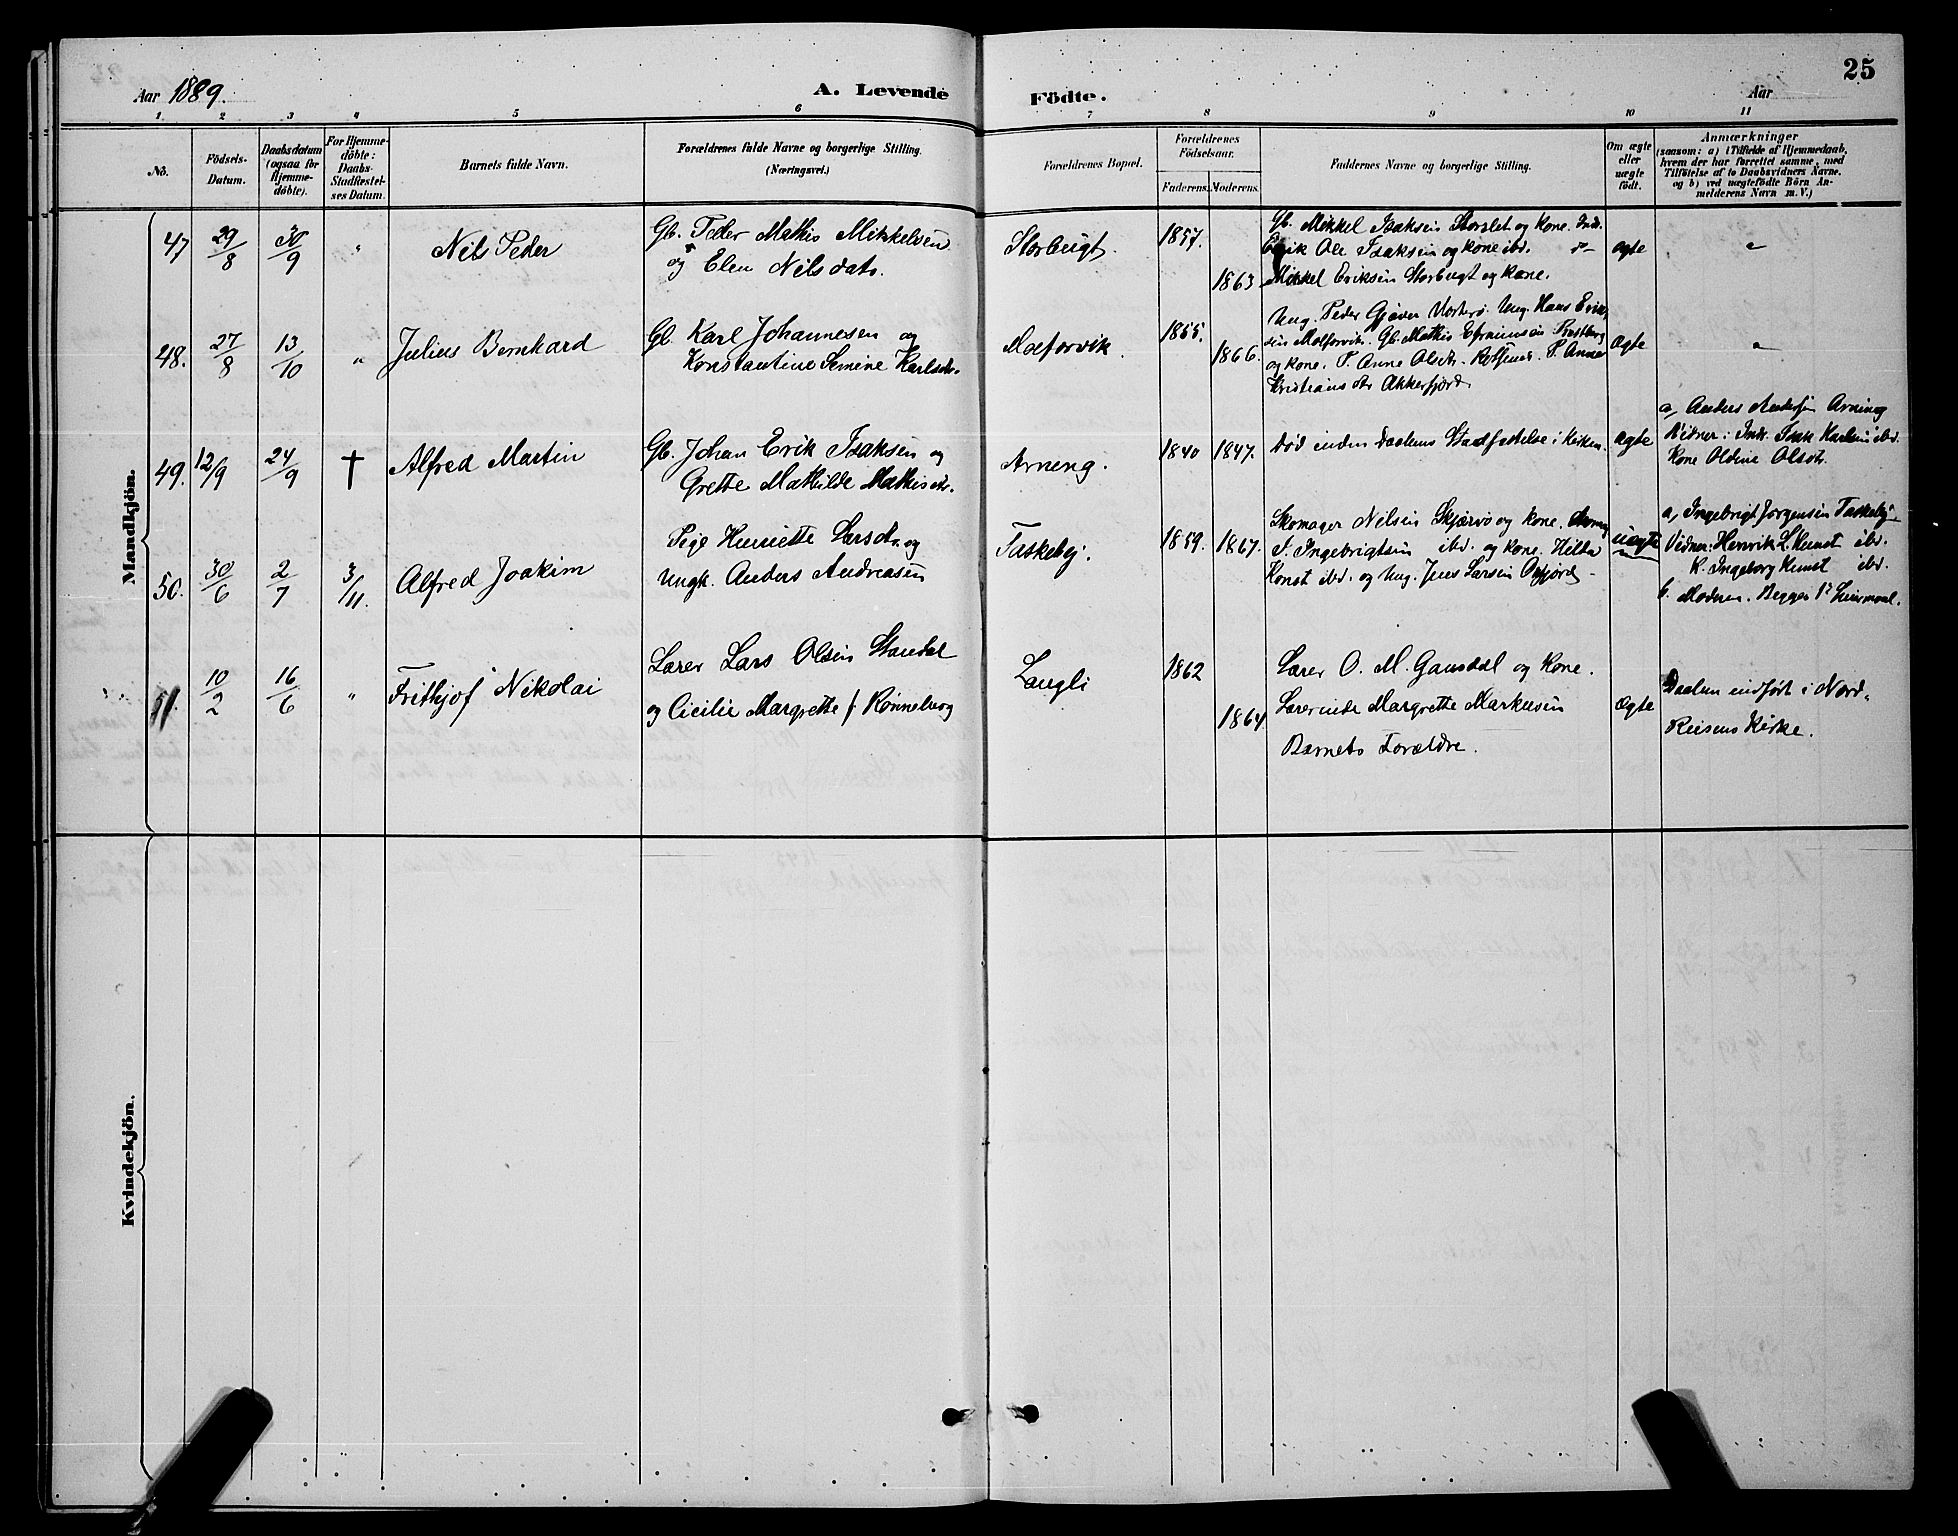 25
Aar 1889.
A. Levende Födte.
Aar
1. 2 3 4 5 6 7 8 9 10 11
No.
Födsels-
Datum.
Daabsdatum
(ogsaa for
Hjemme-
döbte).
For Hjemme-
döbte:
Daabs-
Stadfæstel-
ses Datum.
Barnets fulde Navn.
Forældrenes fulde Navne og borgerlige Stilling.
(Næringsvei.)
Forældrenes Bopæl.
Forældrenes
Födselsaar.
Faderens. Moderens.
Faddernes Navne og borgerlige Stilling.
Om ægte
eller
uægte
født.
Anmærkninger
(saasom: a) i Tilfælde af Hjemmedaab,
hvem der har forrettet samme, med
Tilföielse af to Daabsvidners Navne,
og b) ved uægtefödte Börn An-
melderens Navn m. V.)
Mandkjön.
47 29/8 30/9 " Nils Peder
Gb. Peder Mathis Mikkelsen
og Elen Nilsdatr.
Storbugt. 1857. 1863
Gb. Mikkel Isaksen Storslet og kone. Ind.
Erik Ole Isaksen og kone ibd.
Mikkel Eriksen Storbugt og kone.
ægte "
48. 27/8 13/10 " Julius Bernhard
Gb. Karl Johannesen og
Konstantine Semine Karlsdtr.
Maeforvik. 1855. 1866.
Ung. Peder Gjæver Ung. Hans Erik-
sen Gb. Mathis Efraimsen
og kone. P. Anne Olsdtr. P. Anne
Kristiansdtr Akkerfjord
Ægte "
49. 12/9 24/9 † Alfred Martin
Gb. Johan Erik Isaksen og
Grette Mathilde Mathisdtr.
Arneng. 1840 1847.
Død inden Daabens Stadfæstelse i Kirken.
ægte
a, Anders Andersen Arneng
Vidner: Indr. Isak Karlsen ibd.
Kone Oldine Olsdtr.
50. 30/6 2/7 3/11. Alfred Joakim
Pige Henriette Larsdtr. og
Ungk. Anders Andreasen
Taskeby. 1859. 1867.
Skomager Nilsen Skjærvø og kone.
Ingebrigtsen ibd. og kone. Hilda
Kunst ibd. og Ung. Jens Larsen
uægte
a, Ingebrigt Jørgensen Taskeby
Vidner: Henrik L. Kunst ibd.
K. Ingeborg Kunst ibd.
b. Moderen. Begges 1ste Leiermaal.
51. 10/2 16/6 " Frithjof Nikolai
Lærer Lars Olsen Standal
og Cicilie Margrethe f. Rønneberg
Langli 1862 1864
Lærer O. M. Gausdal og Kone.
Lærerinde Margrette Markusen
Barnets Forældre.
Ægte
Daaben indført i Nord-
Reisens Kirke.
Kvindekjön.